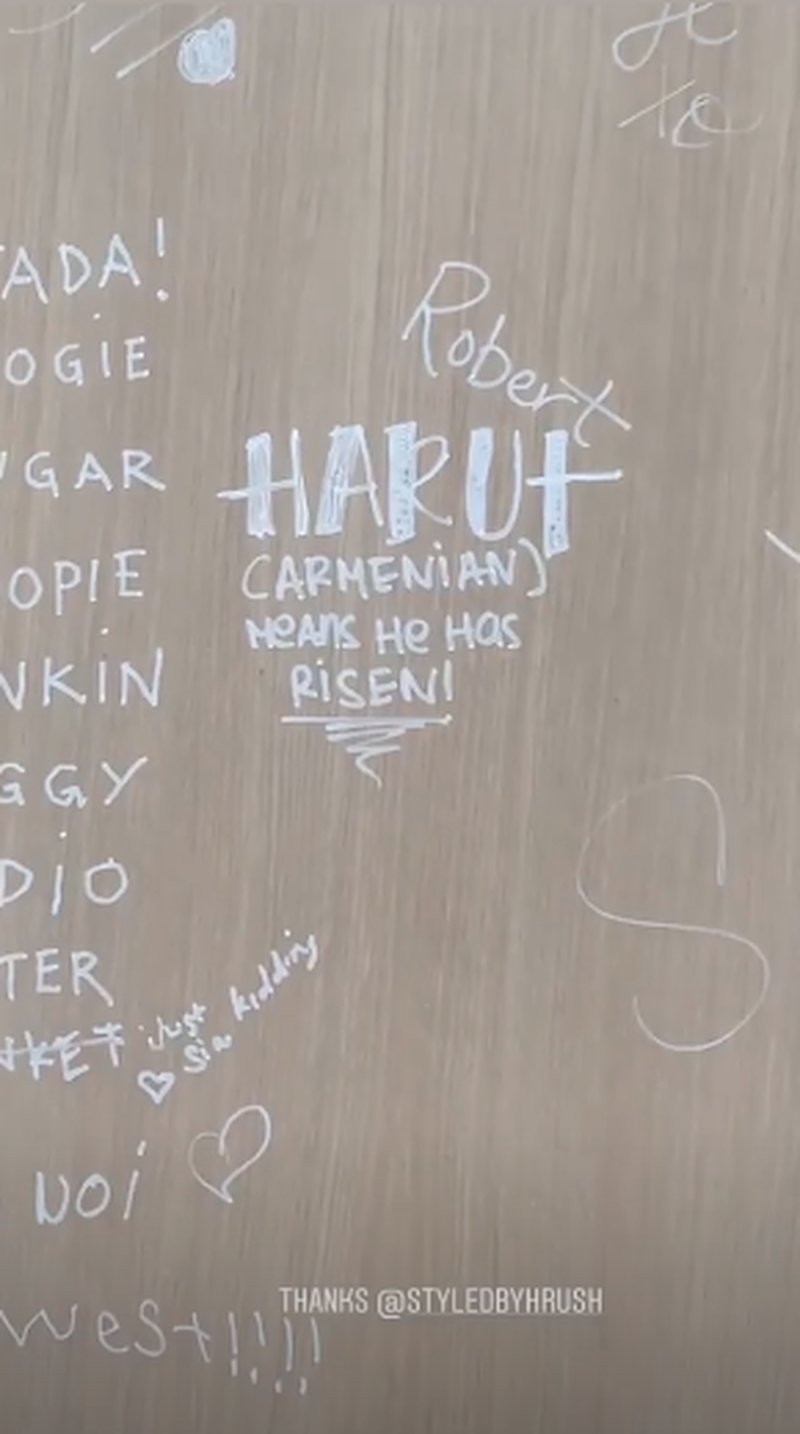 ADA!
OGIE
GAR
OPIE
NKIN
GGY
DIO
TER
KET just kidding
Sin
NOI
West!!!!
Robert
HARUT
(ARMENIAN)
MEANS HE HAS
RISEN!
S
THANKS @STYLEDBYHRUSH